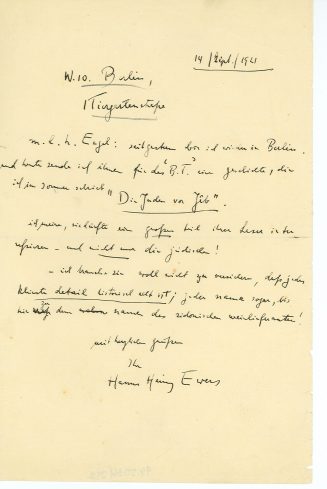 14/Sept./1921
W.10. Berlin,
Tiergartenstrasse
m. l. h. Engel: seit gestern bin ich wieder in Berlin
und heute sende ich ihnen für das "B.T." eine geschichte, die
ich im sommer schrieb "Die Juden von Jêb".
ich meine, sie dürfte ein großen teil ihrer leser inte-
ressieren – und nicht nur die jüdischen!
– ich brauche sie wohl nicht zu versichern, dass jedes
kleinste detail historisch echt ist; jeder name sogar, bis
hin dem wahren namen des sidonischen weinlieferanten!
mit herzlichen grüßen
Ihr
Hanns Heinz Ewers